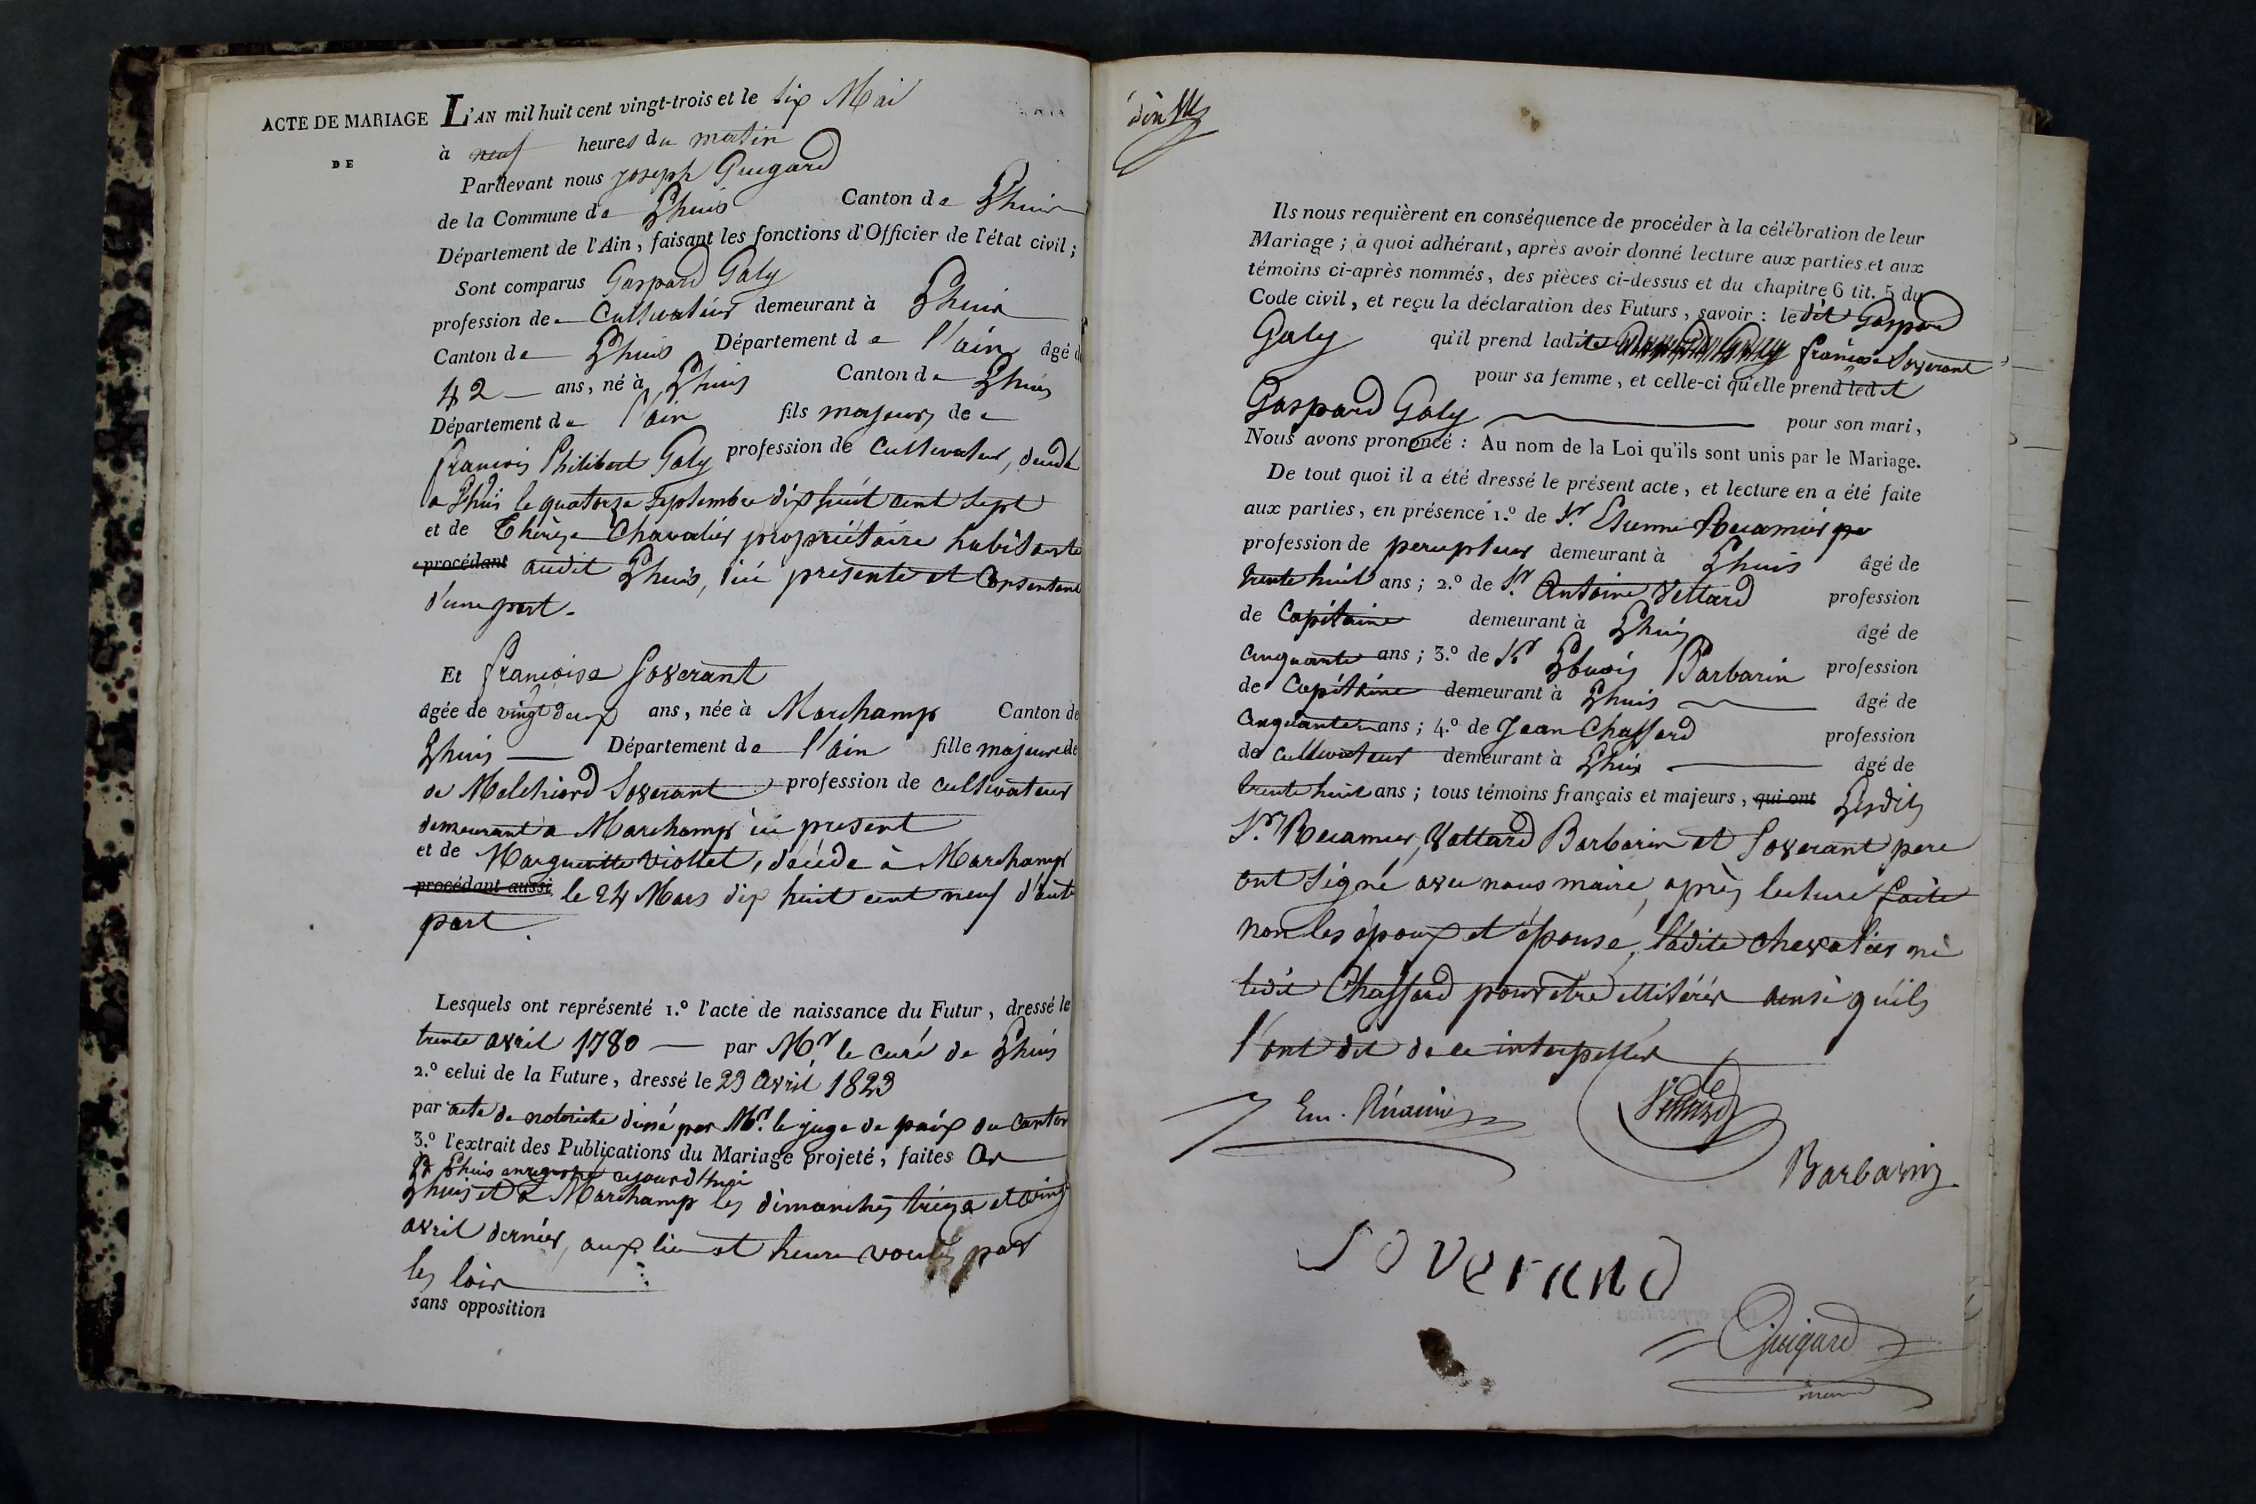 ACTE DE MARIAGE L'AN mil huit cent vingt-trois et le six Mai
DE
à neuf heures du matin
Pardevant nous joseph Guigard
de la Commune de Lhuis Canton de Lhuis
Département de l'Ain, faisant les fonctions d'Officier de l'état civil ;
Sont comparus Gaspard Galy
profession de Cultivateur demeurant à Lhuis
Canton de Lhuis Département de l'ain âgé d
42 ans, né à Lhuis Canton de Lhuis
Département de l'ain fils majeur de
francois Philibert Galy profession de Cultivateur, décédé
a Lhuis le quatorze septembre dix huit cent sept
et de Thérèze Chavalier propriétaire habitante
procédant audit Lhuis, ici presente et Consentant
d'une part.
Et francoise Soverant
âgée de vingt deux ans, née à Marchamp Canton de
Lhuis Département de l'ain fille majeure de
de Melchiord Soverant profession de cultivateur
demeurant a Marchamp ici present
et de Margueritte Viollet, décédé à Marchamp
procédant aussi le 24 Mars dix huit cent neuf d'autr
part.
Lesquels ont représenté 1.º l'acte de naissance du Futur, dressé le
trente avril 1780 par Mr le curé de Lhuis
2.º celui de la Future, dressé le 23 avril 1823
par acte de notoriété dressé par Mr. le juge de paix du Canton
3.º l'extrait des Publications du Mariage projeté, faites a
de Lhuis enregistré aujourd'hui
Lhuis et a Marchamp les dimanches treize et vingt
avril dernier, aux lieu et heure voulus par
les lois
sans opposition
Ils nous requièrent en conséquence de procéder à la célébration de leur
Mariage ; à quoi adhérant, après avoir donné lecture aux parties et aux
témoins ci-après nommés, des pièces ci-dessus et du chapitre 6 tit. 5 du
Code civil, et reçu la déclaration des Futurs, savoir : ledit Gaspard
Galy qu'il prend ladite francoise Soverant
pour sa femme, et celle-ci qu'elle prend ledit
Gaspard Galy pour son mari,
Nous avons prononcé : Au nom de la Loi qu'ils sont unis par le Mariage.
De tout quoi il a été dressé le présent acte, et lecture en a été faite
aux parties, en présence 1.º de Sr. Etienne Recamier
profession de percepteur demeurant à Lhuis âgé de
trente huit ans ; 2.º de Sr. Antoine Vettard profession
de Capitaine demeurant à Lhuis âgé de
cinquante ans ; 3.º de Sr Louis Barbarin profession
de Capitaine demeurant à Lhuis âgé de
cinquante ans ; 4.º de Jean Chaffard profession
de cultivateur demeurant à Lhuis âgé de
trente huit ans ; tous témoins français et majeurs, qui ont Lesdits
Sr. Recamier, Vettard Barbarin et Soverant pere
ont signé avec nous maire, après lecture faite
non les époux et épouse, ladite chevalier ni
ledit Chaffard pour etre illitérés ainsi quils
l'ont dit de ce interpellés
Em. Récamier
Vettard
Barbarin
Soverand
Guigard
maire